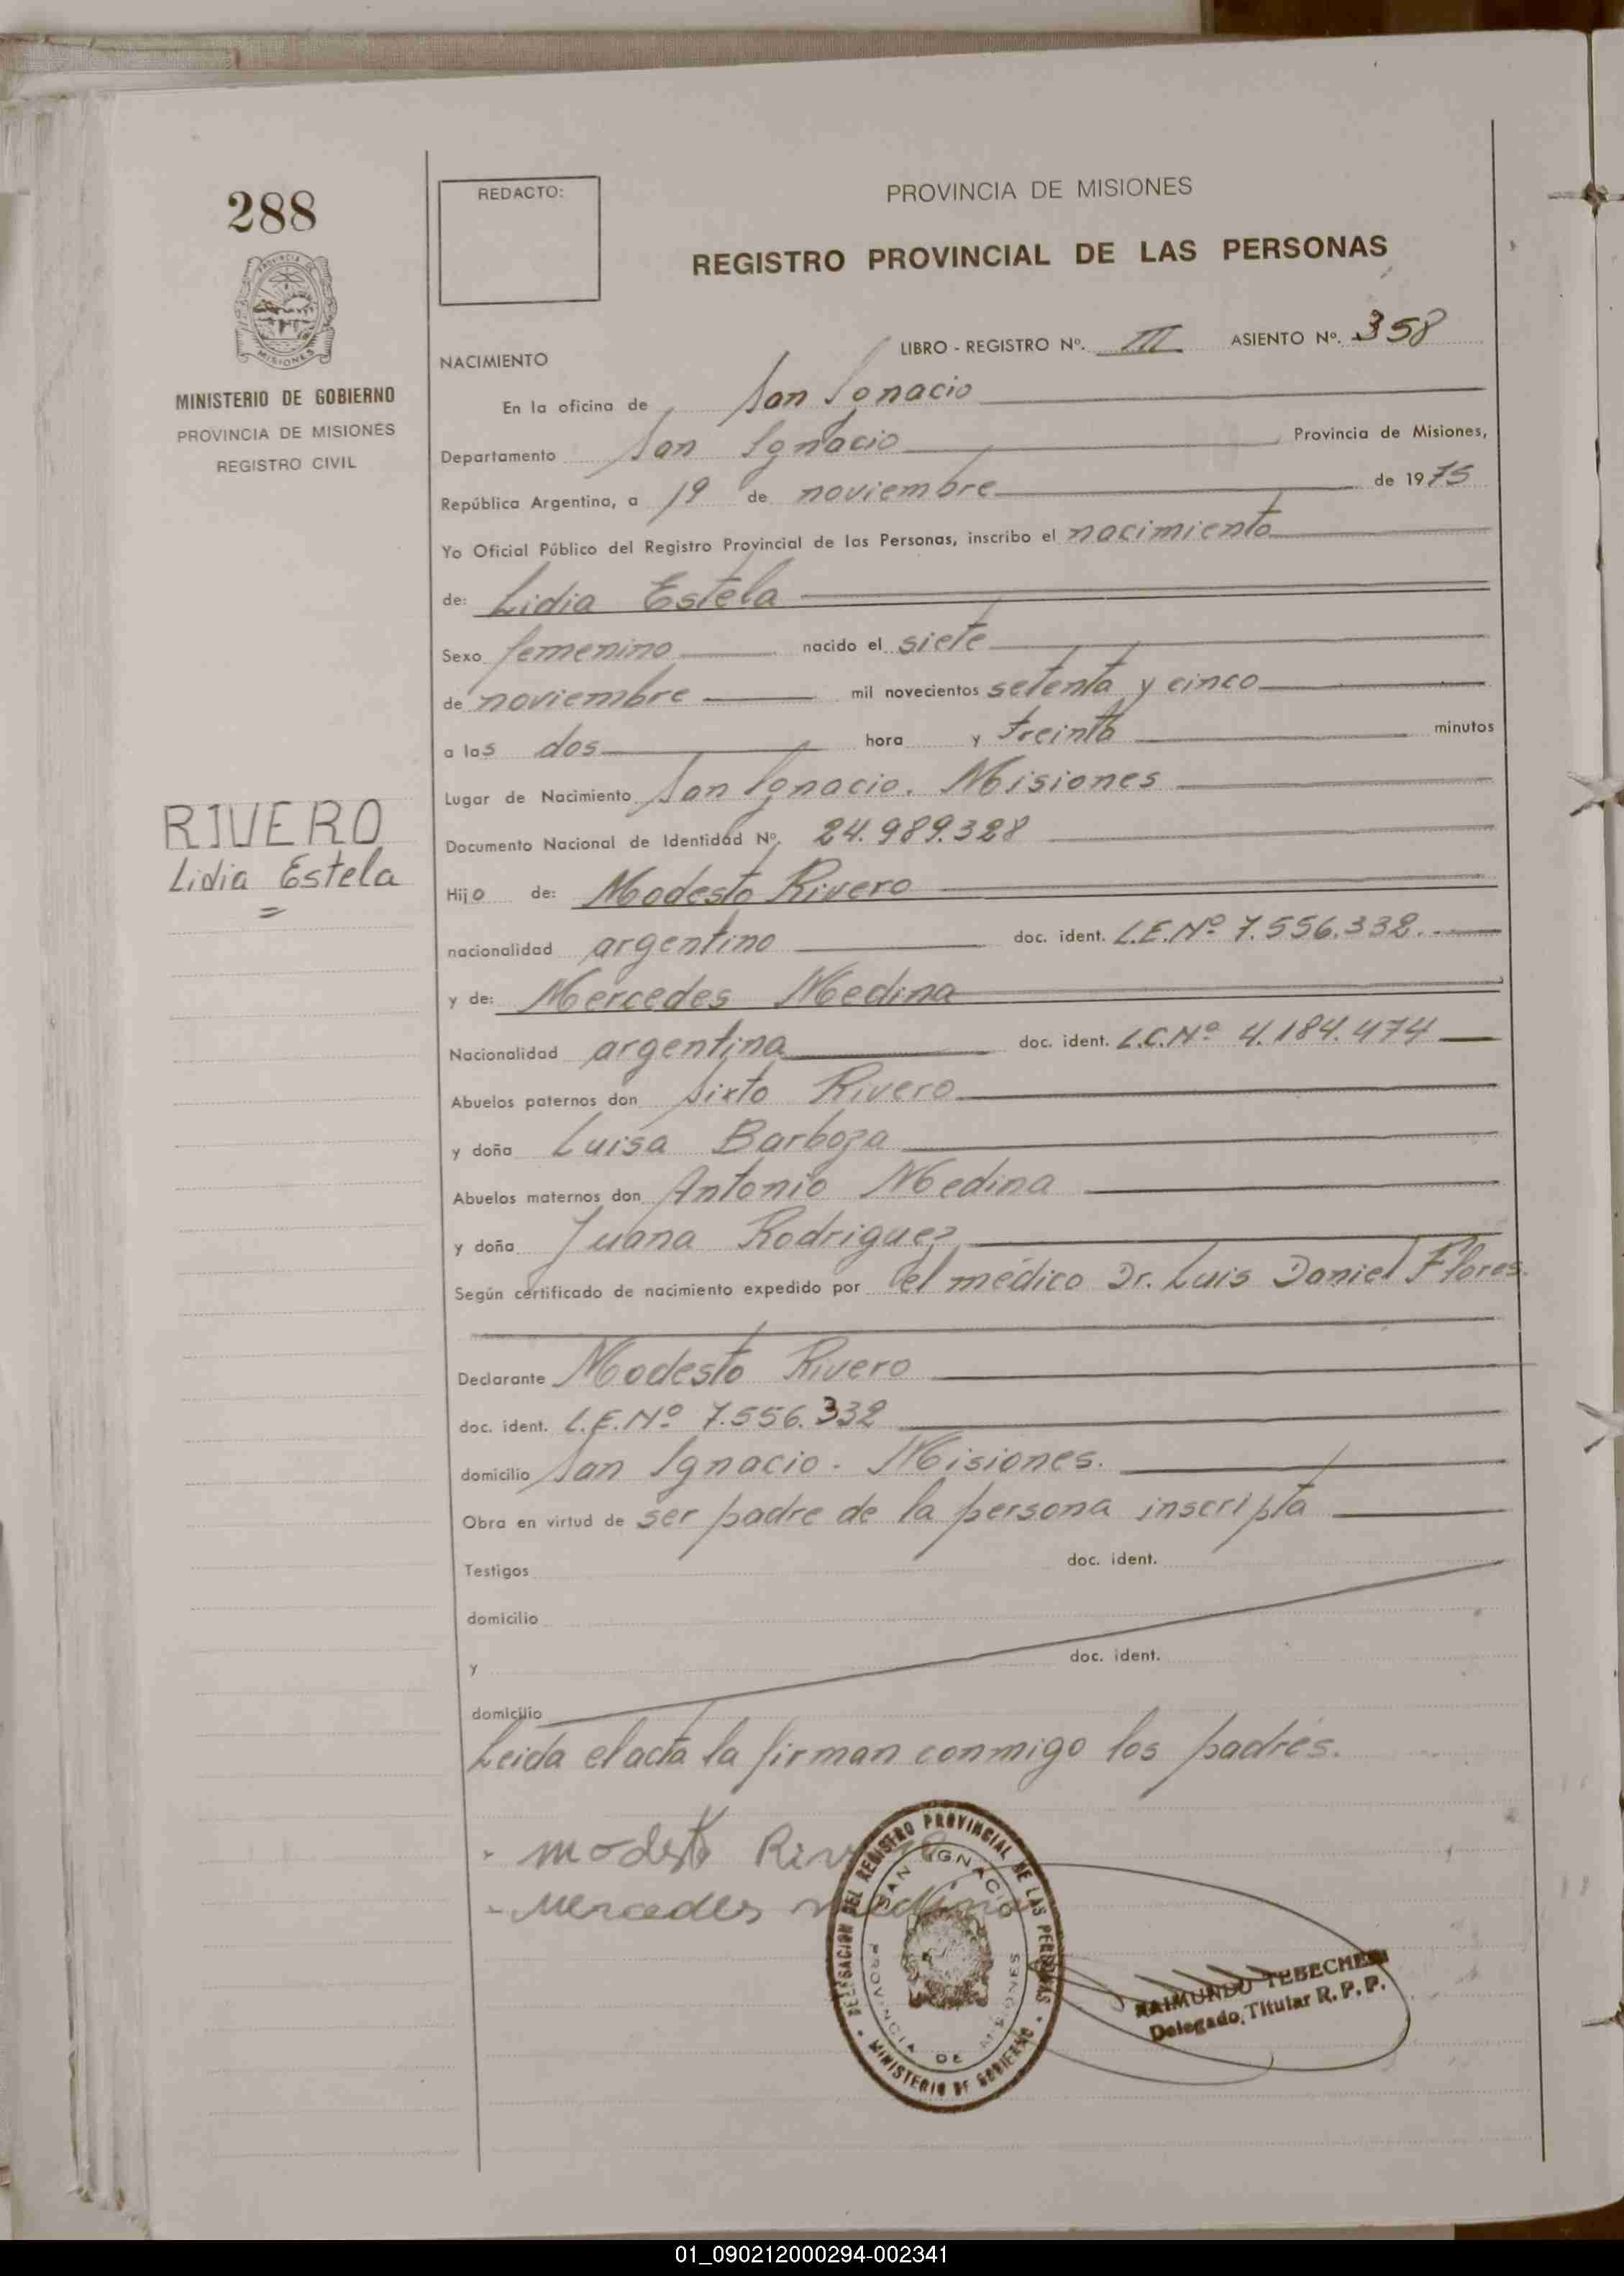 288
PROVINCIA DE
MISIONES
MINISTERIO DE GOBIERNO
PROVINCIA DE MISIONES
REGISTRO CIVIL
RIVERO
Lidia Estela
REDACTO:
PROVINCIA DE MISIONES
REGISTRO PROVINCIAL DE LAS PERSONAS
LIBRO - REGISTRO Nº. III ASIENTO Nº. 358
NACIMIENTO
En la oficina de San Ignacio
Departamento San Ignacio Provincia de Misiones,
República Argentina, a 19 de noviembre de 1975
Yo Oficial Público del Registro Provincial de las Personas, inscribo el nacimiento
de: Lidia Estela
Sexo femenino nacido el siete
de noviembre mil novecientos setenta y cinco
a las dos hora y treinta minutos
Lugar de Nacimiento San Ignacio. Misiones
Documento Nacional de Identidad Nº. 24.989.328
Hijo de: Modesto Rivero
nacionalidad argentino doc. ident. L.E.Nº 7.556.332.
y de: Mercedes Medina
Nacionalidad argentina doc. ident. L.C.Nº 4.184.474
Abuelos paternos don Sixto Rivero
y doña Luisa Barboza
Abuelos maternos don Antonio Medina
y doña Juana Rodriguez
Según certificado de nacimiento expedido por el médico Dr. Luis Daniel Flores.
Declarante Modesto Rivero
doc. ident. L.E.Nº 7.556.332
domicilio San Ignacio - Misiones.
Obra en virtud de ser padre de la persona inscripta
Testigos doc. ident.
domicilio
y doc. ident.
domicilio
Leida el acta la firman conmigo los padres.
- Modesto Rivero
- Mercedes medina
DELEGACION DEL REGISTRO PROVINCIAL DE LAS PERSONAS
SAN IGNACIO
PROVINCIA DE MISIONES
MINISTERIO DE GOBIERNO
RAIMUNDO
Delegado Titular R. P. P.
01_090212000294-002341